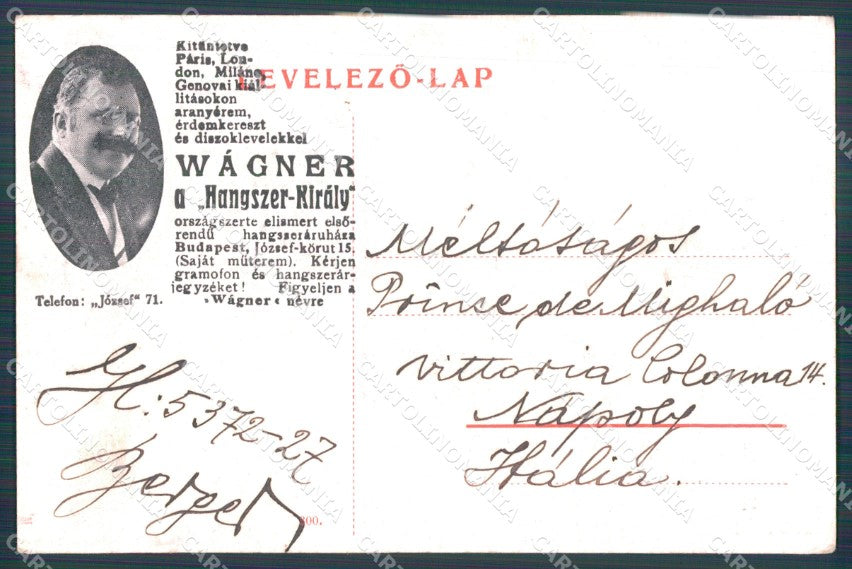 Kitüntetve
Páris, Lon-
don, Miláno,
Genovai kiál-
litásokon
aranyérem,
érdemkereszt
és diszoklevelekkel
LEVELEZŐ-LAP
WÁGNER
a „Hangszer-Király"
országszerte elismert első-
rendű hangszeráruháza
Budapest, József-körut 15.
(Saját műterem). Kérjen
gramofon és hangszerár-
jegyzéket! Figyeljen a
»Wágner« névre
Telefon: „József" 71.
Méltóságos
Prinse de Mighaló
Vittoria Colonna 14.
Nápoly
Itália.
5372-27
Berger
300.
CARTOLINOMANIA